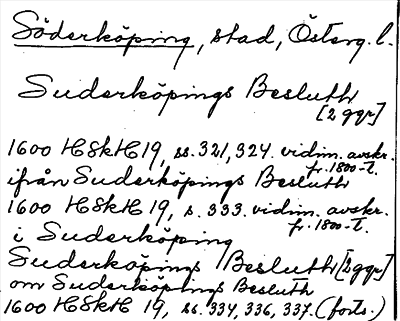 Söderköping, stad, Österg. l.
Suderköpings Besluth
[2 ggr]
1600 HSkH 19, ss. 321, 324. vidim. avskr.
fr. 1800-t.
ifrån Suderköpings Besluth
1600 HSkH 19, s. 333. vidim. avskr.
fr. 1800-t.
i Suderköping
Suderköpings Besluth [2 ggr]
om Suderköpings Besluth
1600 HSkH 19, ss. 334, 336, 337. (forts.)